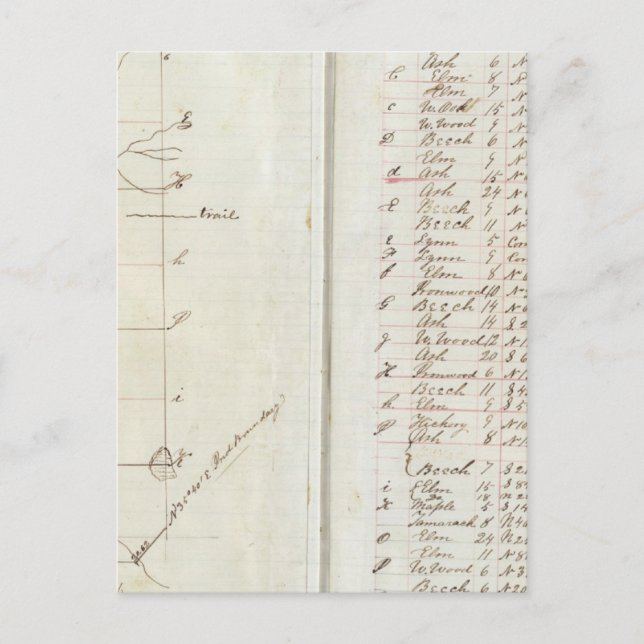 6
E
H
trail
h
P
i
K
N 35° 40' E. Ind Boundary
3062
Ash 6 N
C Elm 8 N
Elm 7 N
c W. Oak 15 N
W. Wood 9 N
D Beech 6 N
Elm 9 N
d Ash 15 N
Ash 24 N
E Beech 9 N
Beech 11 N
E Lynn 5 Con
F Lynn 9 Con
f Elm 8 N
Ironwood 10 N
G Beech 14 N
Ash 14 S 2
g W. Wood 12 N
Ash 20 S 6
H Ironwood 6 N
Beech 11 S 4
h Elm 9 S 5
P Hickory 9 N 10
Ash 8 N
Beech 7 S 2
i Elm 15 S 8
Do 18 N 2
K Maple 5 S 14
Tamarack 8 N 4
O Elm 24 N 2
Elm 11 N 8
P W. Wood 6 N 3
Beech 6 N 20